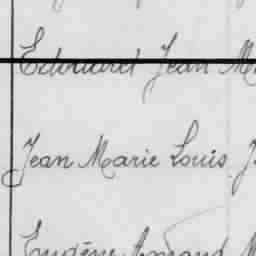 Edouard Jean M
Jean Marie Louis J
Eugène Armand M